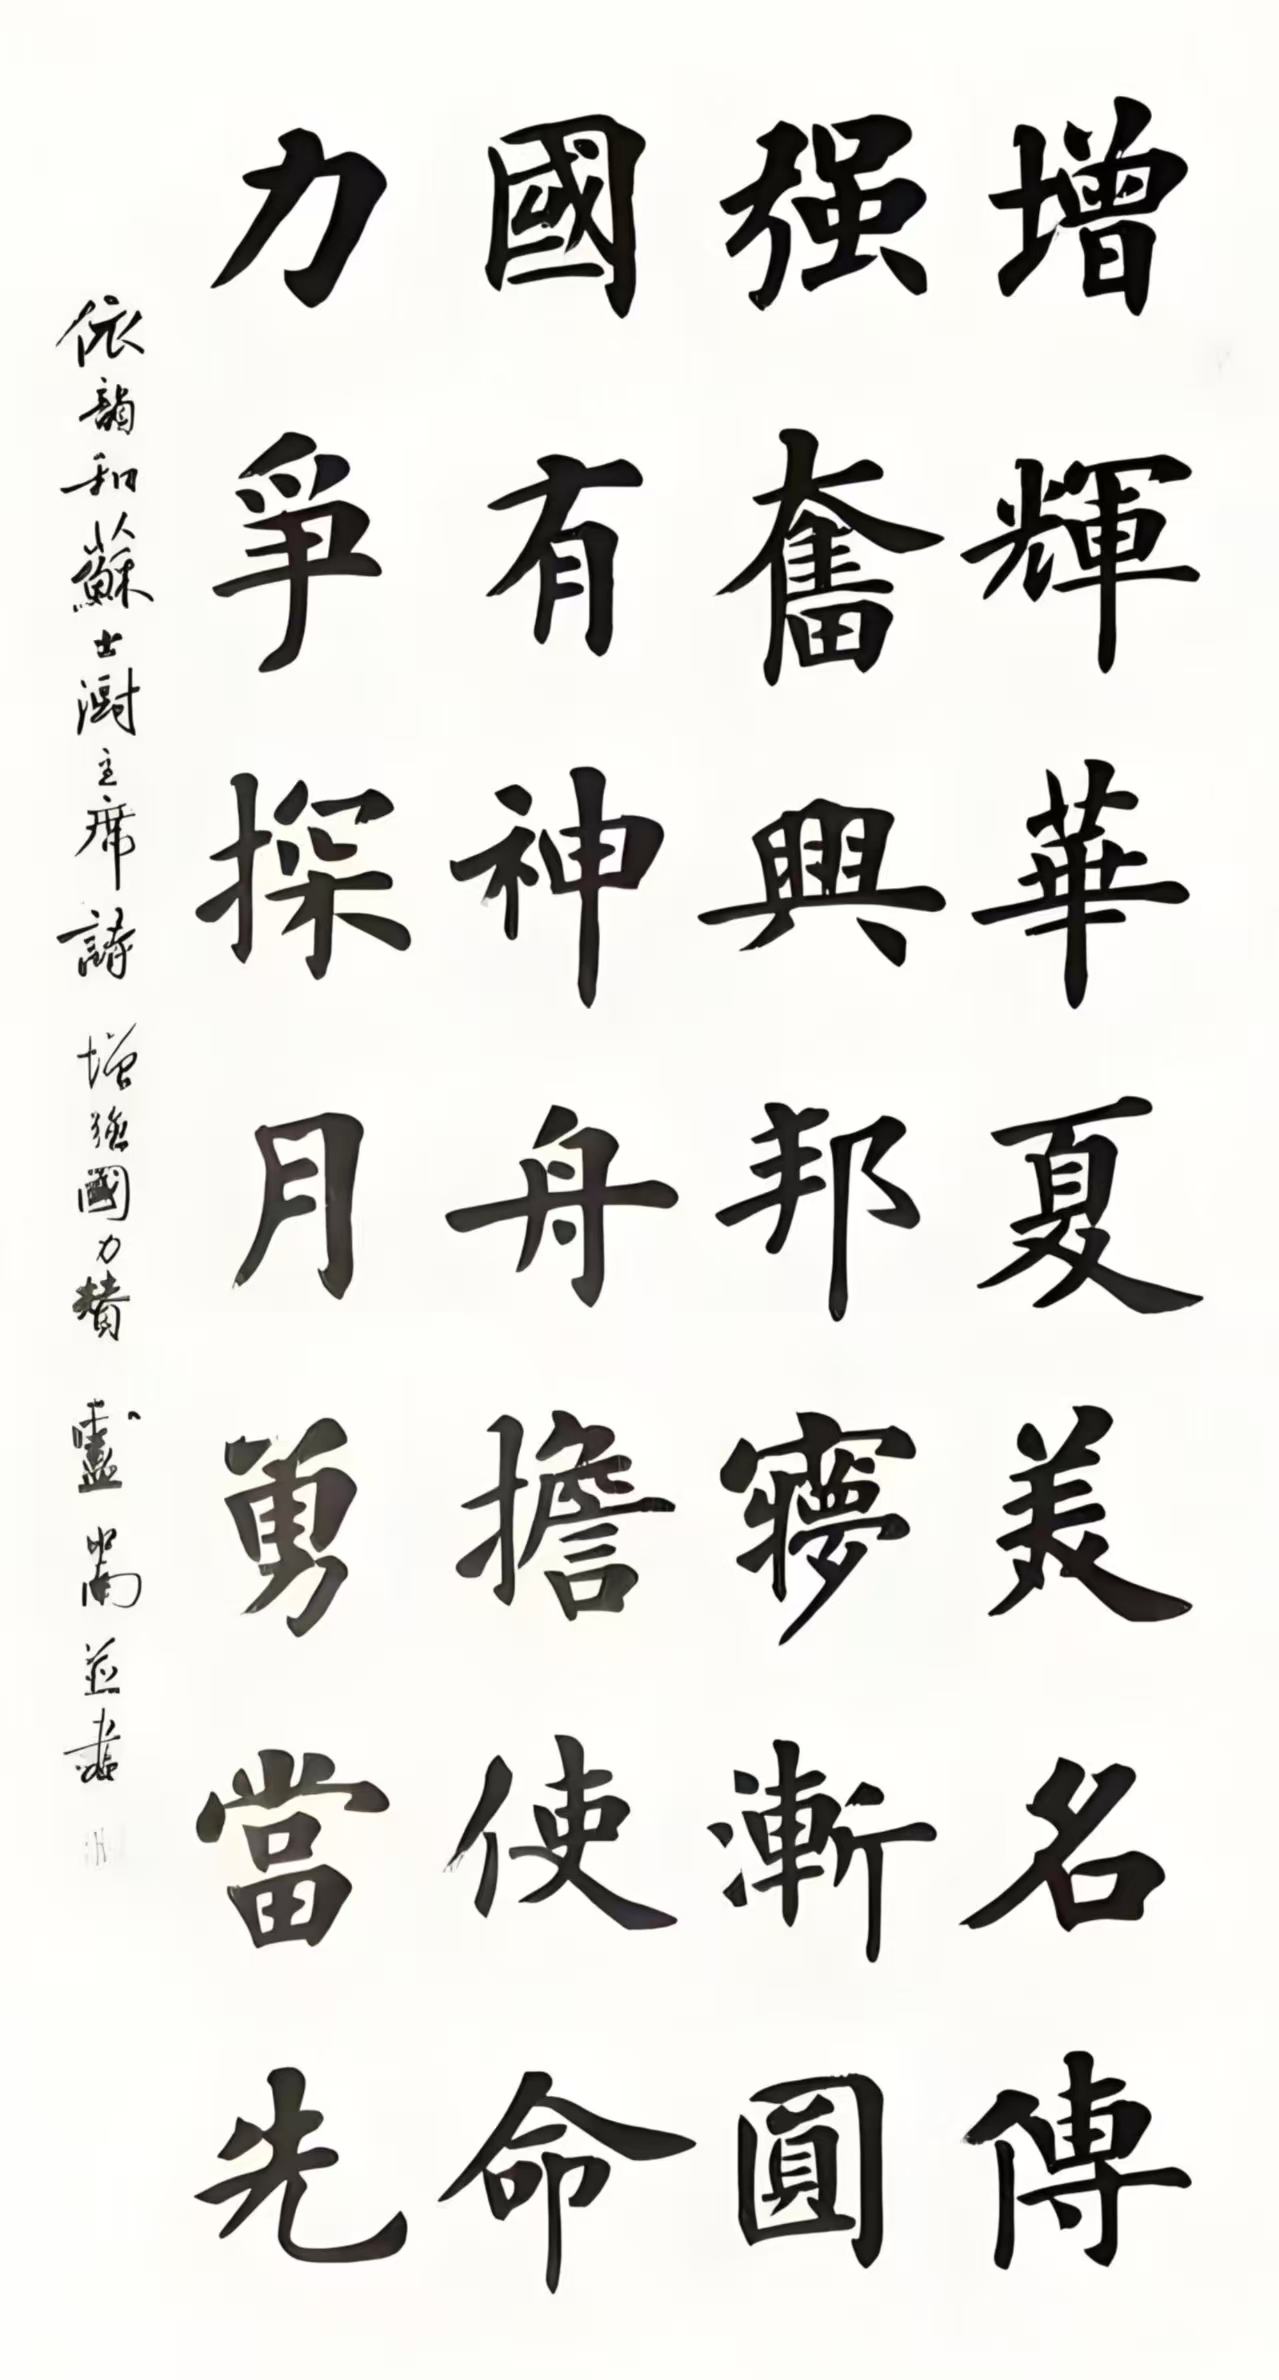 增輝華夏美名傳
强奮興邦夢漸圓
國有神舟擔使命
力爭探月勇當先
依韻和蘇士澍主席詩 增強國力贊 盧尚 並書